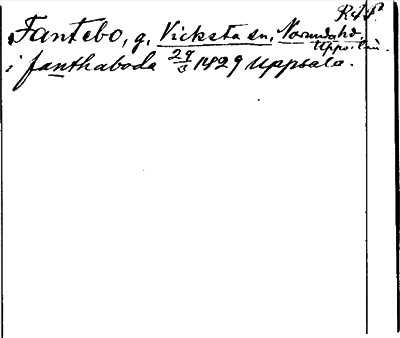 Fantebo, g, Vicksta sn, Norunda hd,
Upps. län.
i fanthaboda 29/5 1429 Uppsala.